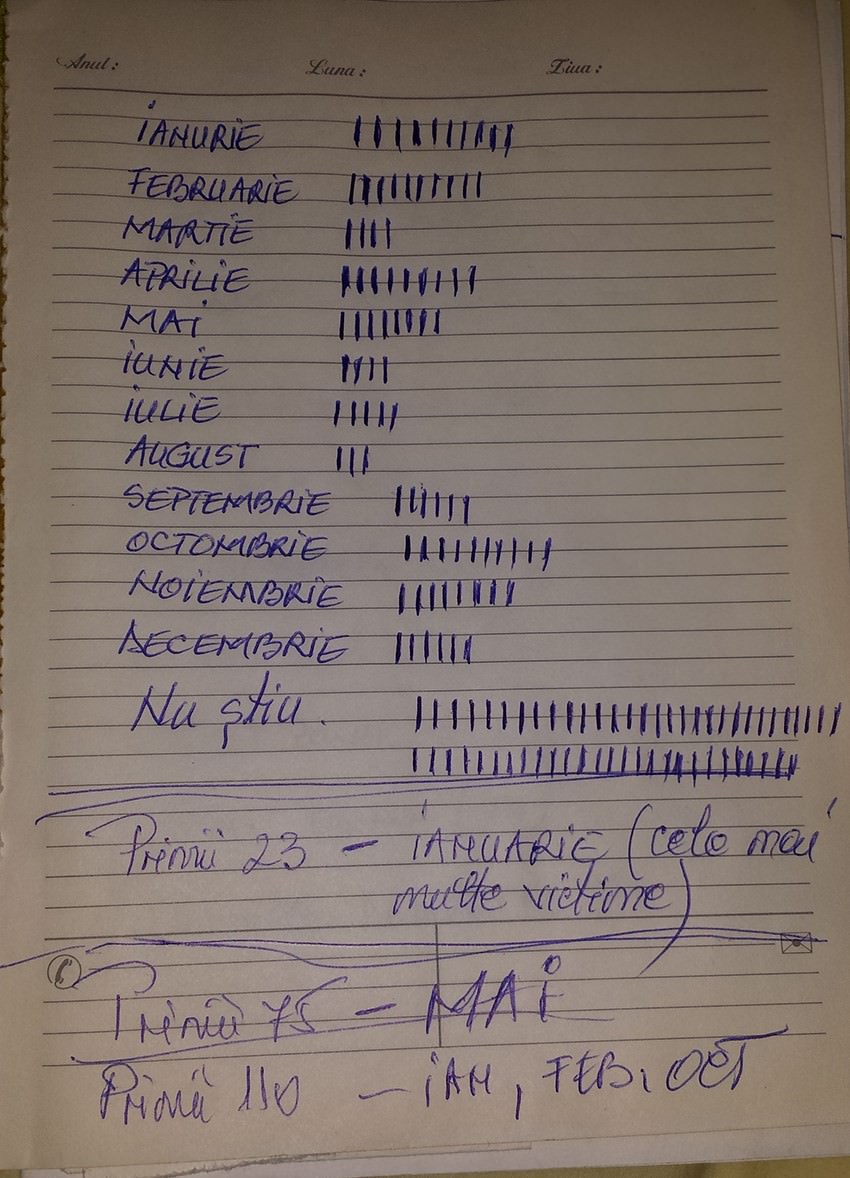 Anul : Luna : Ziua :
IANURIE
FEBRUARIE
MARTIE
APRILIE
MAI
IUNIE
IULIE
AUGUST
SEPTEMBRIE
OCTOMBRIE
NOIEMBRIE
DECEMBRIE
Nu știu.
Primii 23 – IANUARIE (cele mai
multe victime)
Primii 75 – MAI
Primii 110 – IAN, FEB, OCT